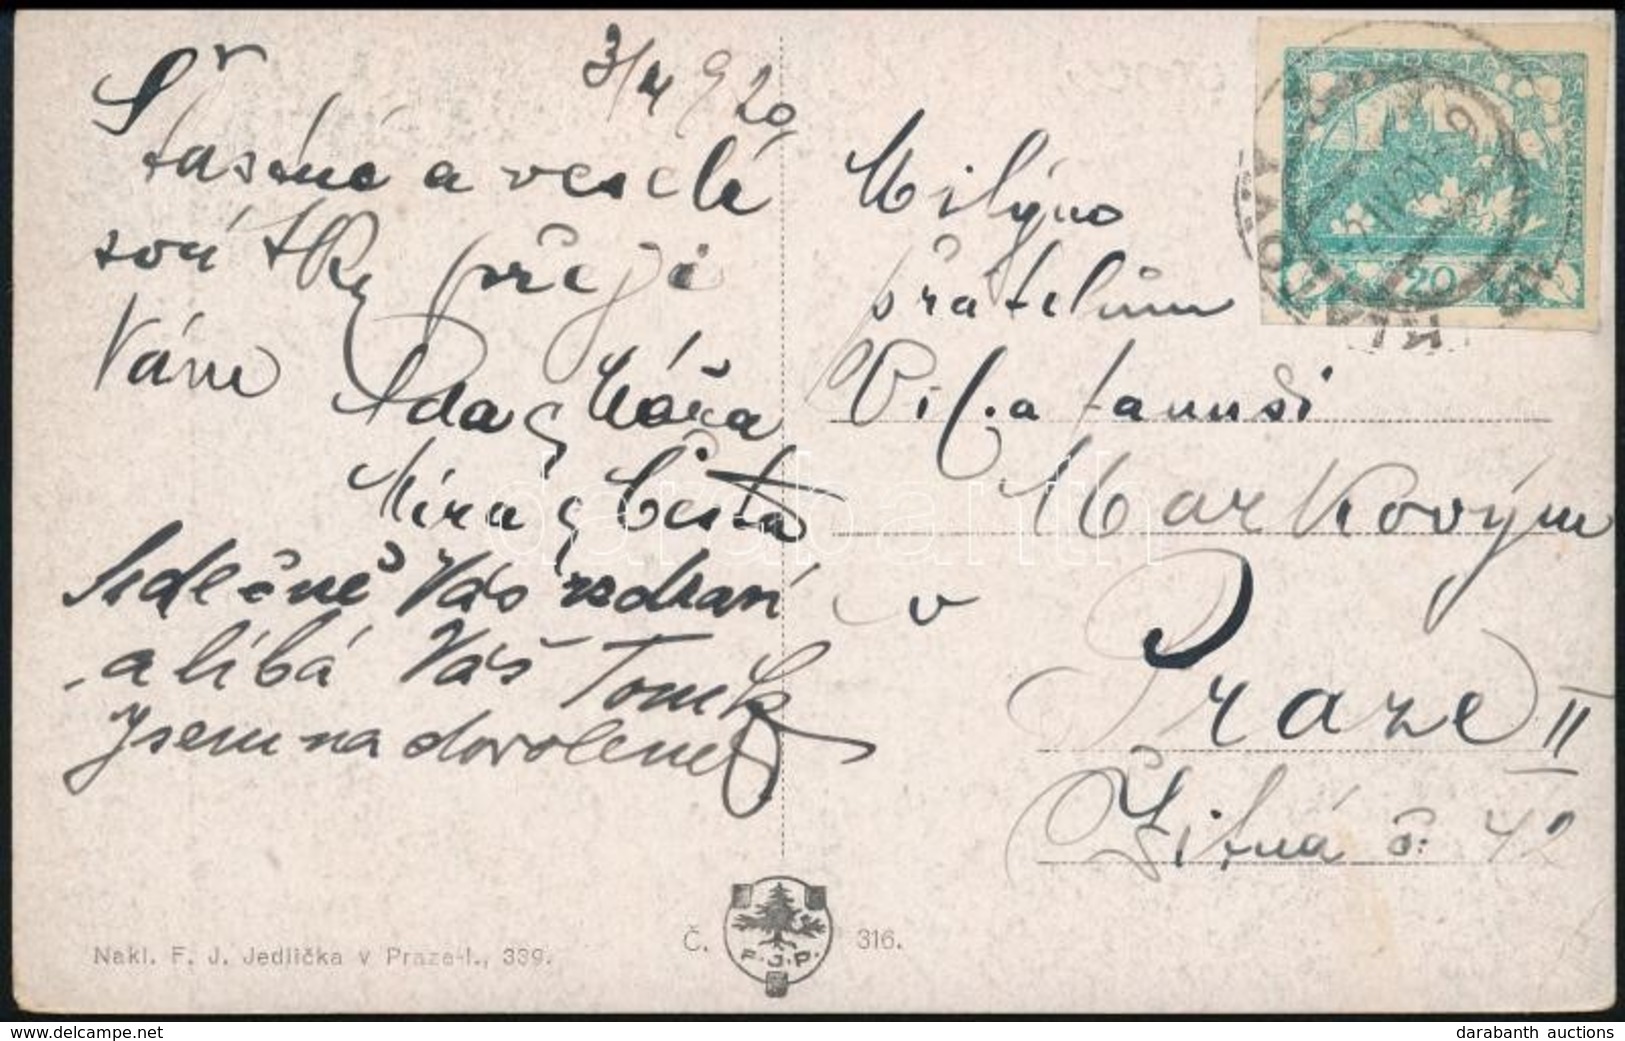 3/IV 920
Šťastné a veselé
svátky přeje
Vám Áda a Máňa
Míra a Čésta
Srdečně Vás zdraví
a líbá Váš Tomík
Jsem na dovolené
Milýno
přátelům
Vil. a Fanuši
Markovým
v
Praze II
Žitná č. 42
POŠTA
20
Nakl. F. J. Jedlička v Praze-I., 339.
Č. 316.
F.J.P.
darabanth
www.delcampe.net
darabanth auctions